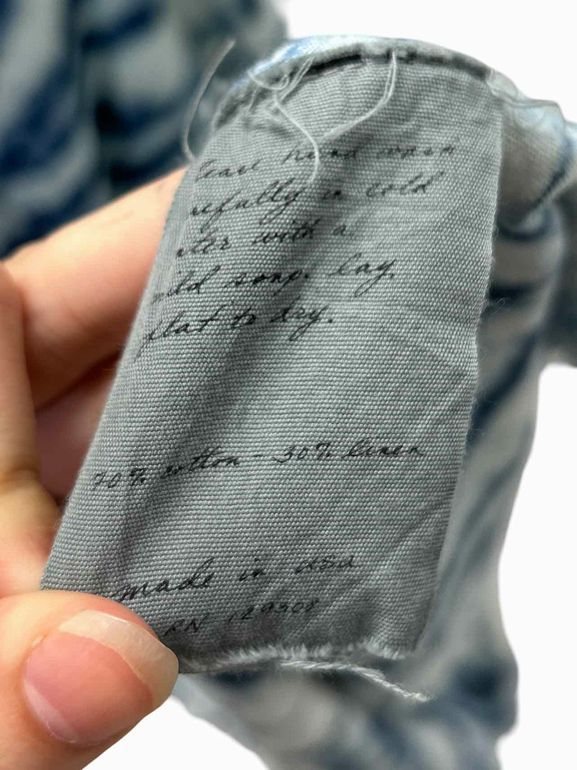 hand wash
refully in cold
ater with a
ild soap. lay
flat to dry.
70% cotton - 30% linen
made in usa
RN 129308